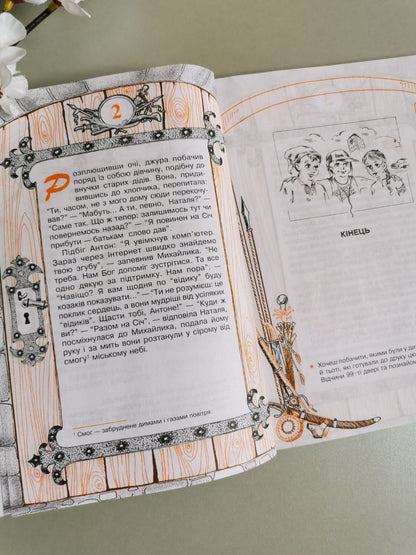 2
Розплющивши очі, джура побачив
поряд із собою дівчину, подібну до
внучки старих дідів. Вона, приди-
вившись до хлопчика, перепитала:
“Ти, часом, не з мого дому сюди перекочу-
вав?” — “Мабуть... А ти, певно, Наталя?” —
“Саме так. Що ж тепер: залишимось тут чи
повернемось назад?” — “Я повинен на Січ
прибути — батькам слово дав”.
Підбіг Антон: “Я увімкнув комп’ютер.
Зараз через Інтернет швидко знайдемо
твою згубу”, — запевнив Михайлика. “Не
треба. Нам Бог допоміг зустрітися. Та все
одно дякую за підтримку. Нам пора”. —
“Навіщо? Я вам щодня по “відику” буду
козаків показувати...” — “Ти не розумієш: це
поклик сердець, а вони мудріші від усіляких
“відиків”. Щасти тобі, Антоне!” — “Куди ж
ви?” — “Разом на Січ”, — відповіла Наталя,
посміхнулася до Михайлика, подала йому
руку і за мить вони розтанули у сірому від
смогу¹ міському небі.
¹ Смог — забруднене димами і газами повітря.
КІНЕЦЬ
Хочеш побачити, якими були у д
й тьоті, які готували до друку цю
Відчини 99-ті двері та познайом